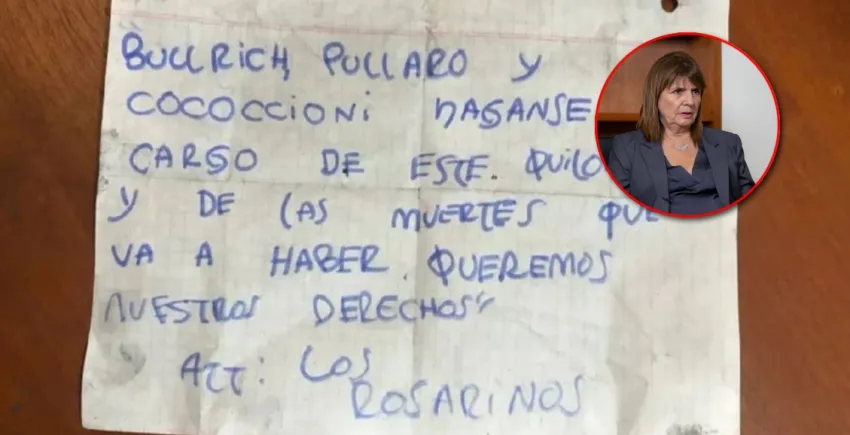 "BULLRICH, PULLARO Y
COCOCCIONI HAGANSE
CARGO DE ESTE QUILO
Y DE LAS MUERTES QUE
VA A HABER. QUEREMOS
NUESTROS DERECHOS"
ATT: LOS
ROSARINOS